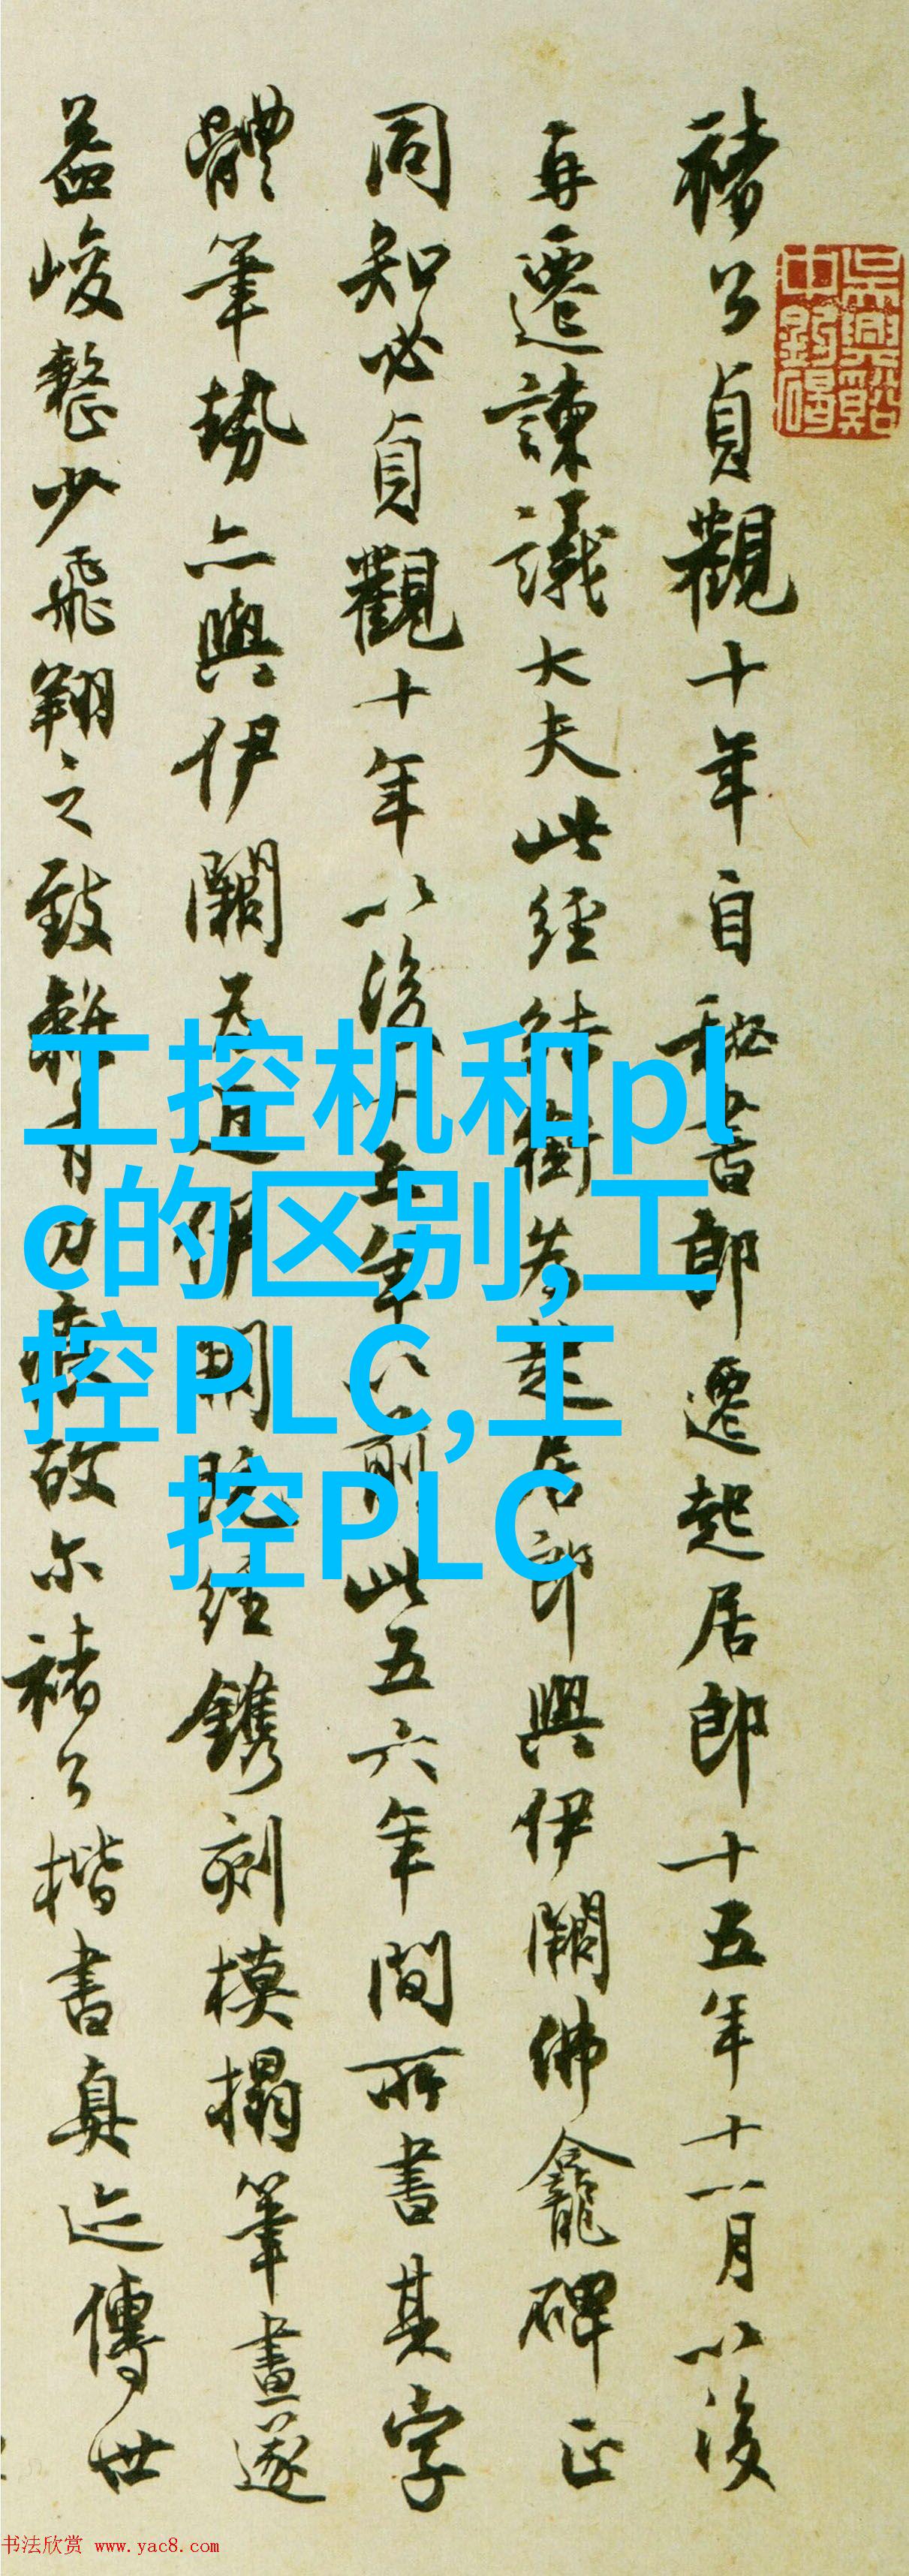 褚公貞觀十年自秘書郎遷起居郎十五年十一月以後
再遷諫議大夫此經結銜為起居郎與伊闕佛龕碑正
同知必貞觀十年以後十五年以前此五六年間所書其字
體筆勢亦與伊闕近伊闕既經鐫刻模搨筆畫遂
益峻整少飛翔之致有刀痕故尔褚公楷書真迹傳世
工控机和pl
c的区别,工
控PLC,工
控PLC
书法欣赏 www.yac8.com